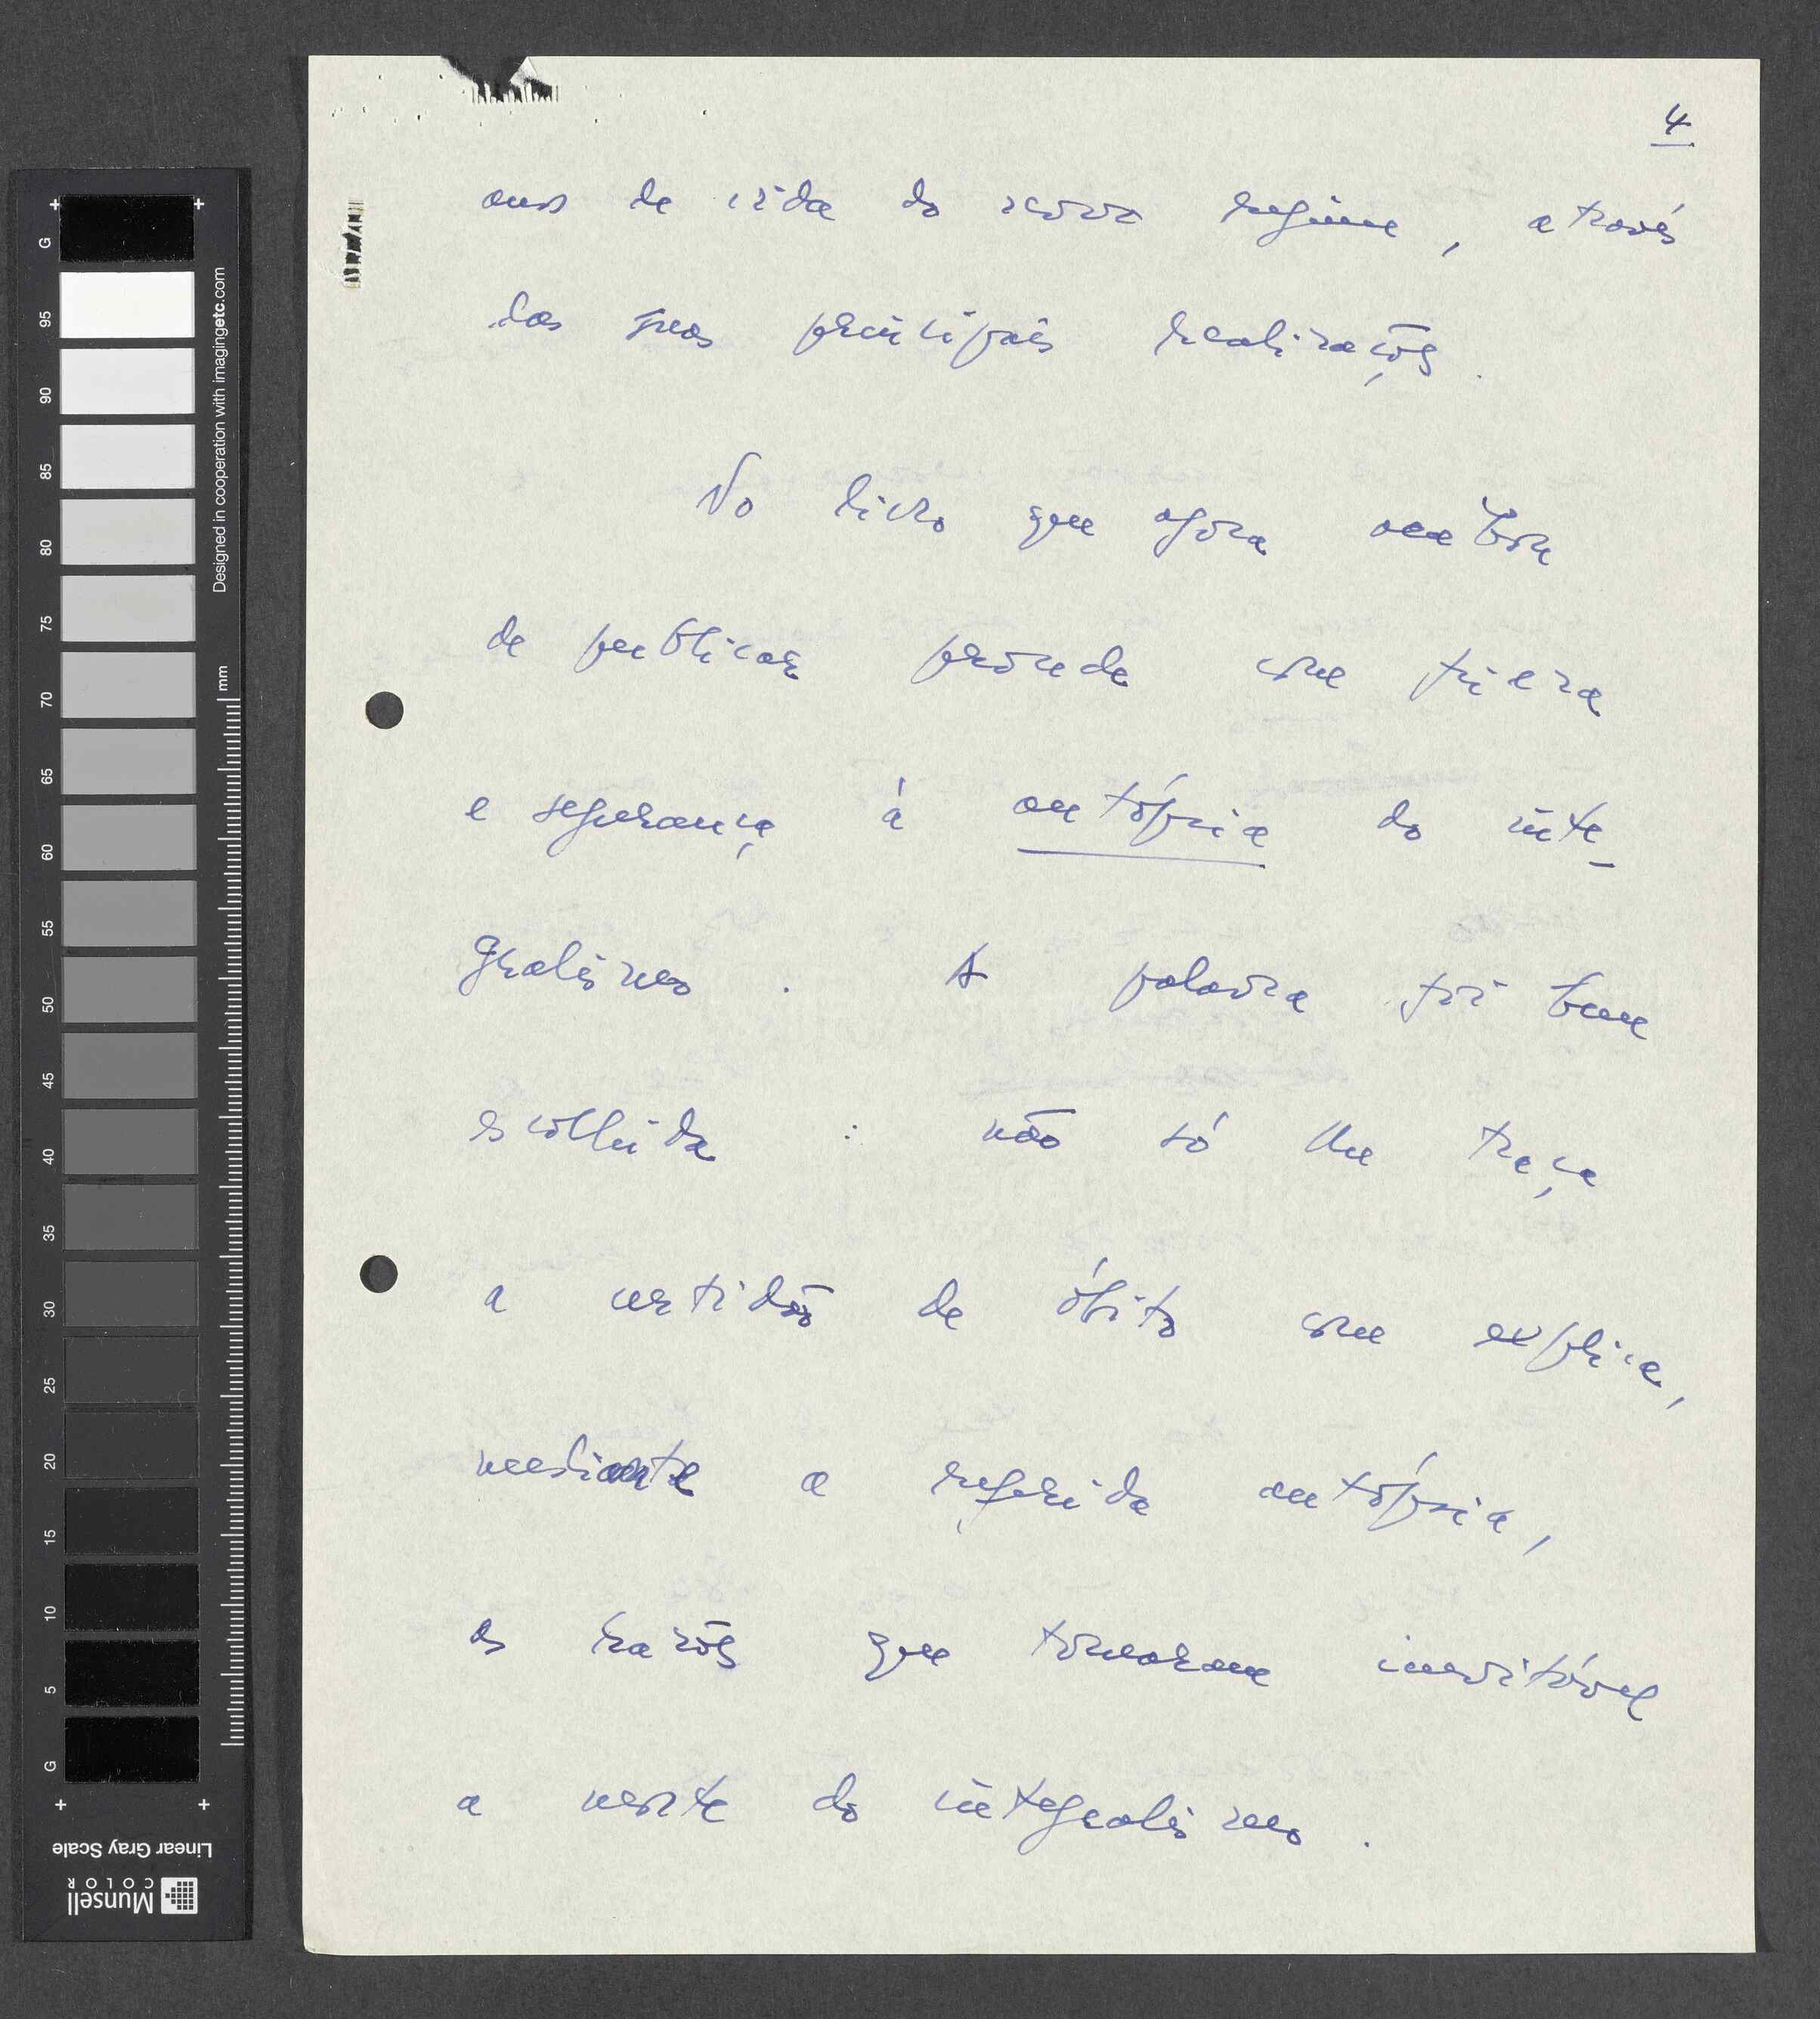 4
anos de vida do novo regime, através
das suas principais realizações.
No livro que agora acabou
de publicar procede com frieza
e segurança à autópsia do inte-
gralismo. A palavra foi bem
escolhida: não só lhe traça
a certidão de óbito como explica,
mediante a referida autópsia,
as razões que tornaram inevitável
a morte do integralismo.
G
95
90
85
80
75
70
65
60
55
50
45
40
35
30
25
20
15
10
5
G
Designed in cooperation with imagingetc.com
mm
Linear Gray Scale
Munsell
COLOR